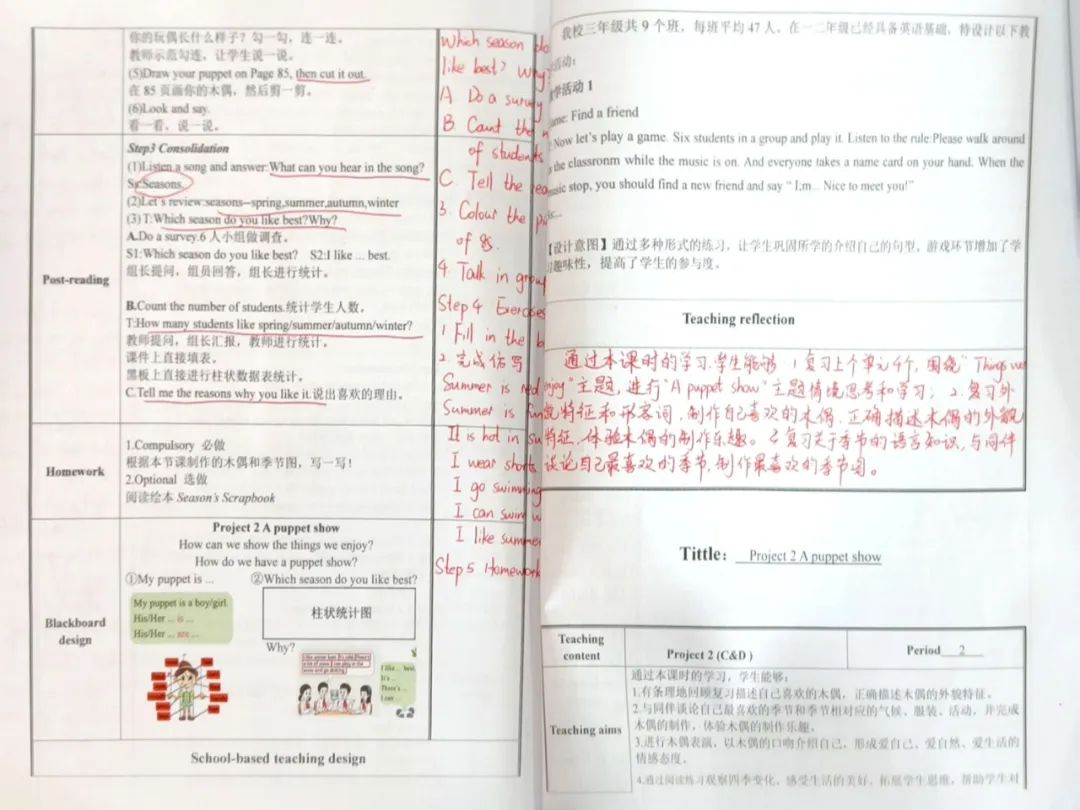 你的玩偶长什么样子？勾一勾，连一连。
教师示范勾连，让学生说一说。
(5)Draw your puppet on Page 85, then cut it out.
在 85 页画你的木偶，然后剪一剪。
(6)Look and say.
看一看、说一说。
Post-reading
Step3 Consolidation
(1)Listen a song and answer:What can you hear in the song?
Ss:Seasons.
(2)Let's review:seasons--spring,summer,autumn,winter
(3) T:Which season do you like best?Why?
A.Do a survey.6 人小组做调查。
S1:Which season do you like best? S2:I like ... best.
组长提问，组员回答，组长进行统计。
B.Count the number of students.统计学生人数。
T:How many students like spring/summer/autumn/winter?
教师提问，组长汇报，教师进行统计。
课件上直接填表。
黑板上直接进行柱状数据表统计。
C.Tell me the reasons why you like it.说出喜欢的理由。
Homework
1.Compulsory 必做
根据本节课制作的木偶和季节图，写一写！
2.Optional 选做
阅读绘本 Season's Scrapbook
Blackboard
design
Project 2 A puppet show
How can we show the things we enjoy?
How do we have a puppet show?
①My puppet is ... ②Which season do you like best?
My puppet is a boy/girl.
His/Her ... is ...
His/Her ... are ...
柱状统计图
Why?
I like ... best.
It's ...
There's ...
I can ...
School-based teaching design
Which season do
like best? Why?
A Do a survey
B. Count the
of students
C. Tell the rea
3. Colour the
of 85.
4. Talk in group
Step 4 Exercises
1. Fill in the b
2. 完成仿写
Summer is red
Summer is fun
It is hot in su
I wear shorts
I go swimming
I can swim w
I like summer
Step 5 Homework
我校三年级共 9 个班，每班平均 47 人，在一二年级已经具备英语基础，特设计以下教
活动：
学活动 1
ame: Find a friend
Now let's play a game. Six students in a group and play it. Listen to the rule:Please walk around
the classronm while the music is on. And everyone takes a name card on your hand. When the
music stop, you should find a new friend and say “ I;m... Nice to meet you!”
【设计意图】通过多种形式的练习，让学生巩固所学的介绍自己的句型，游戏环节增加了学
习趣味性，提高了学生的参与度。
Teaching reflection
通过本课时的学习,学生能够 1.复习上个单元4个, 围绕" Things we
enjoy"主题, 进行"A puppet show"主题情境思考和学习; 2.复习外
貌特征和形容词, 制作自己喜欢的木偶, 正确描述木偶的外貌
特征, 体验木偶的制作乐趣。 复习关于季节的语言知识, 与同伴
谈论自己最喜欢的季节, 制作最喜欢的季节图。
Tittle: Project 2 A puppet show
Teaching
content
Project 2 (C&D )
Period 2
Teaching aims
通过本课时的学习，学生能够：
1.有条理地回顾复习描述自己喜欢的木偶，正确描述木偶的外貌特征。
2.与同伴谈论自己最喜欢的季节和季节相对应的气候、服装、活动，并完成
木偶的制作，体验木偶的制作乐趣。
3.进行木偶表演，以木偶的口吻介绍自己，形成爱自己、爱自然、爱生活的
情感态度。
4.通过阅读练习观察四季变化，感受生活的美好，拓展学生思维，帮助学生对